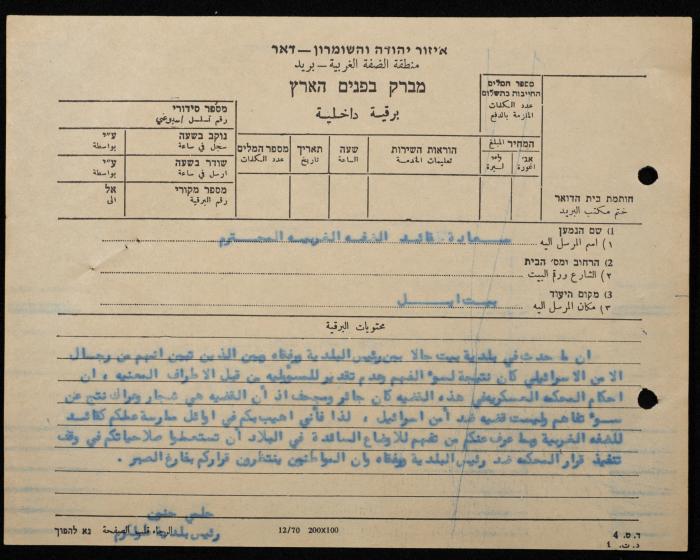 איזור יהודה והשומרון — דאר
منطقة الضفة الغربية — بريد
מברק בפנים הארץ
برقية داخلية
מספר המלים
החייבות בתשלום
عدد الكلمات
الملزمة بالدفع
המחיר المبلغ
אג' اغورة
ל"י ليرة
הוראות השירות
تعليمات الخدمة
שעה
الساعة
תאריך
تاريخ
מספר המלים
عدد الكلمات
מספר סידורי
رقم تسلسل اسبوعي
נוקב בשעה ע"י
سجل في ساعة بواسطة
שודר בשעה ע"י
ارسل في ساعة بواسطة
מספר מקורי אל
رقم البرقية الى
חותמת בית הדואר
ختم مكتب البريد
1) שם הנמען
١) اسم المرسل اليه سعادة قائد الضفه الغربيه المحترم
2) הרחוב ומס' הבית
٢) الشارع ورقم البيت
3) מקום היעוד
٣) مكان المرسل اليه بيت ايل
محتويات البرقية
ان ما حدث في بلدية بيت جالا بين رئيس البلدية ورفقاه وبين الذين تبين انهم من رجال
الامن الاسرائيلي كان نتيجة لسوء الفهم وعدم تقدير للمسؤليه من قبل الاطراف المعنيه ، ان
احكام المحكمه العسكريه في هذه القضيه كان جائر ومجحف اذ أن القضيه هي شجار وعراك نتج عن
سوء تفاهم وليست قضيه ضد أمن اسرائيل ، لذا فأني اهيب بكم في اوائل ممارسة عملكم كقائد
للضفه الغربية وبما عرف عنكم من تفهم للاوضاع السائدة في البلاد أن تستعملوا صلاحياتكم في وقف
تنفيذ قرار المحكمه ضد رئيس البلدية ورفقاه وان المواطنين ينتظرون قراركم بفارغ الصبر .
حلمي حنون
رئيس بلدية طولكرم
נא להפוך الرجاء قلب الصفحة
12/70 200X100
ד. ס. 4
د. ت. ٤